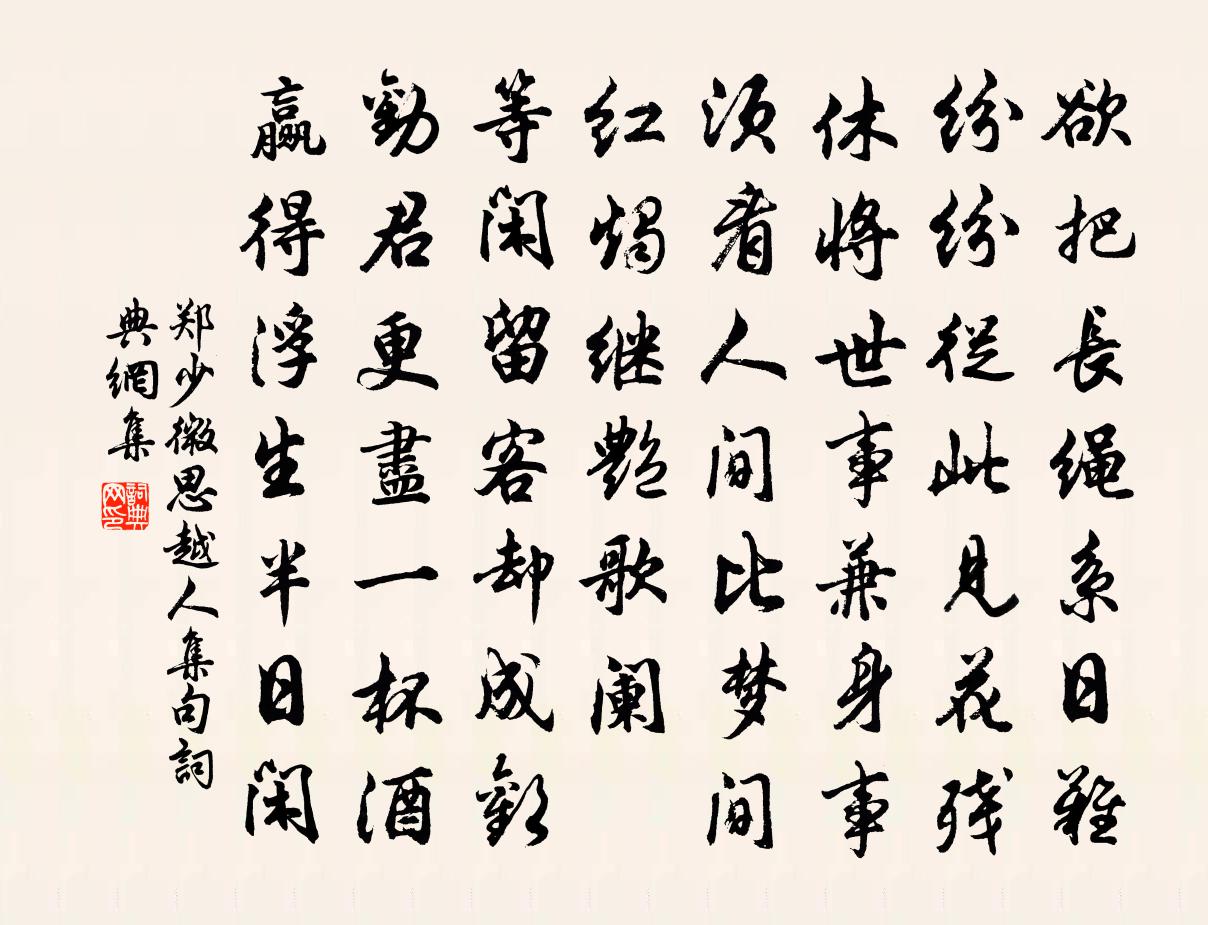 欲把長绳系日難
纷纷從此見花残
休將世事兼身事
须看人间比梦间
红烛继艷歌阑
等闲留客却成歡
勸君更盡一杯酒
赢得浮生半日闲
郑少微思越人集句詞
典網集
詞典网印